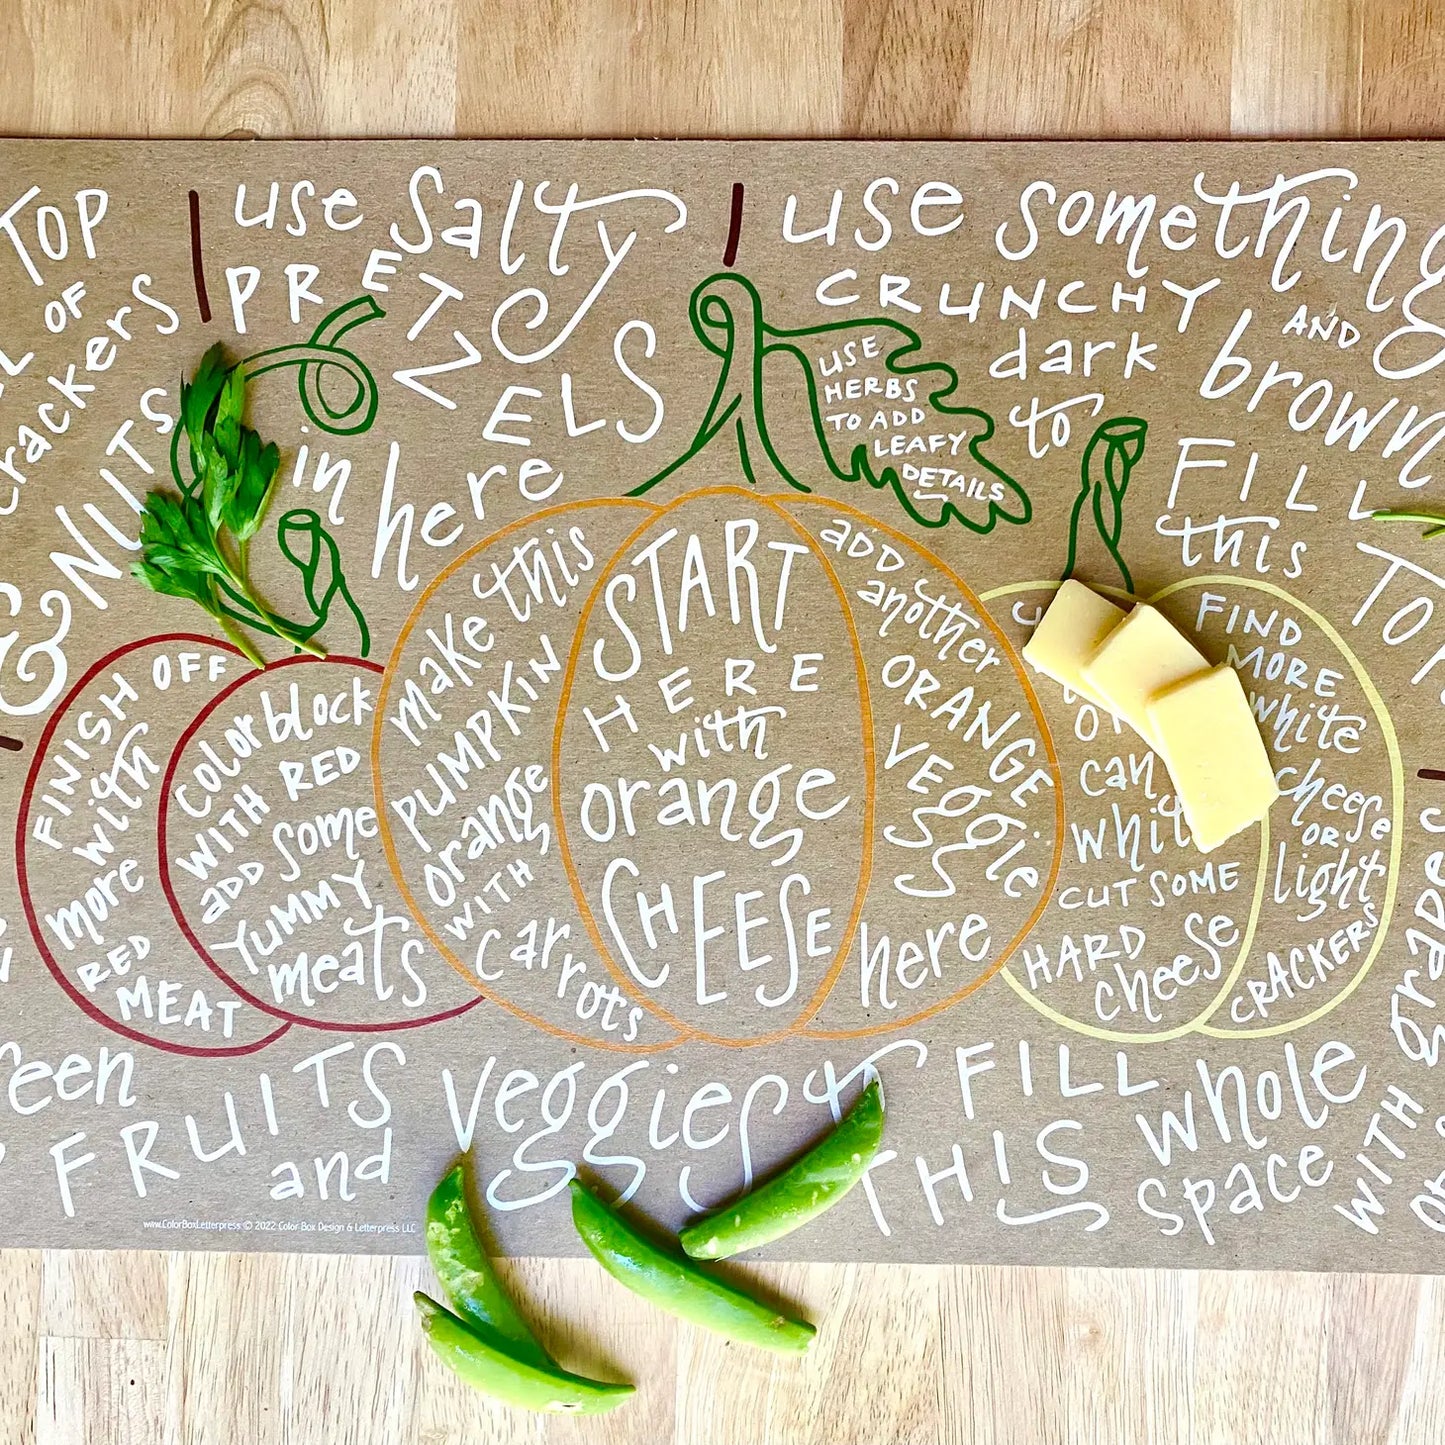 TOP
OF
crackers
& NUTS
use salty
PRETZELS
in here
use something
CRUNCHY AND
dark brown
to FILL
this
USE
HERBS
TO ADD
LEAFY
DETAILS
FINISH OFF
with
more
RED
MEAT
colorblock
WITH RED
ADD some
YUMMY
meats
make this
PUMPKIN
orange
WITH
carrots
START
HERE
with
orange
CHEESE
ADD
another
ORANGE
VEggie
here
can
white
CUT SOME
HARD
cheese
FIND
MORE
white
cheese
OR
light
CRACKERS
FRUITS
and
veggies
FILL
THIS whole
space
WITH
www.ColorBoxLetterpress © 2022 Color Box Design & Letterpress LLC